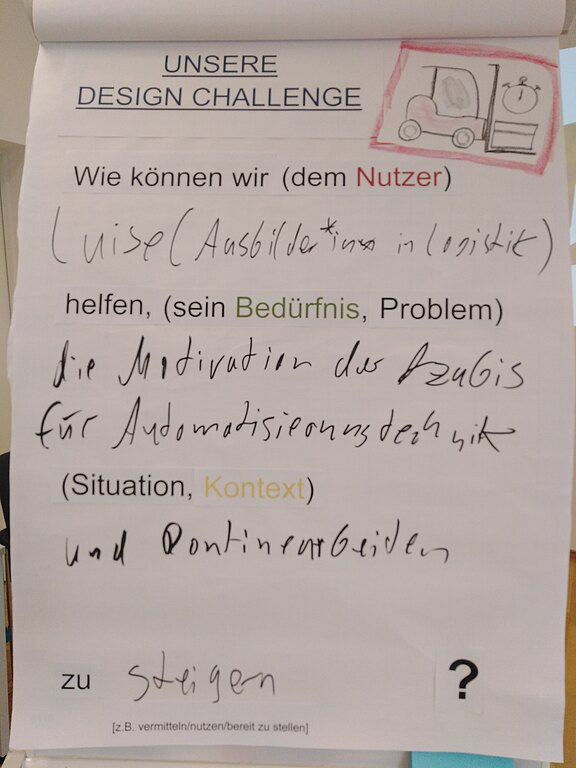 UNSERE
DESIGN CHALLENGE
Wie können wir (dem Nutzer)
Luise (Ausbilder*in in Logistik)
helfen, (sein Bedürfnis, Problem)
die Motivation der Azubis
für Automatisierungstechnik
(Situation, Kontext)
und Routinearbeiten
zu steigern ?
[z.B. vermitteln/nutzen/bereit zu stellen]